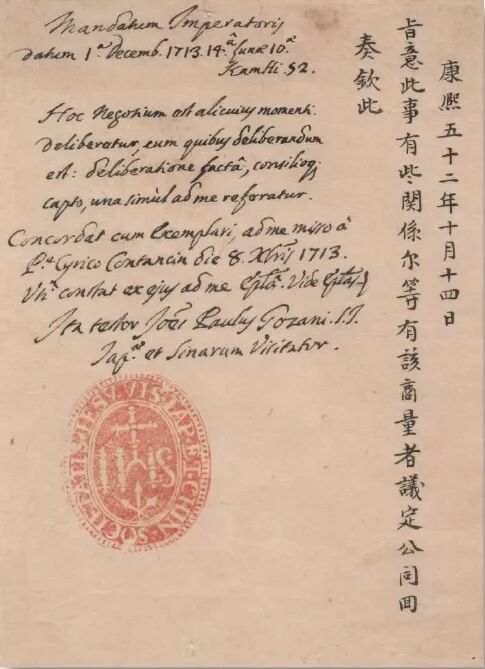 Mandatum Imperatoris
datum 1.ª Decemb. 1713. 14.ª Lunæ 10.ª
Kamhi. 52.
Hoc Negotium est alicuius momenti.
deliberetur, cum quibus deliberandum
est: deliberatione factâ, consilioq;
capto, una simul ad me referatur.
Concordat cum Exemplari, ad me misso à
P.e Cyrico Contancin die 8. Xbris 1713.
constat ex ejus ad me Ep.la Vide
Ita testor Joēs Paulus Gozani. S.J.
Jap.æ et Sinarum Visitator.
康熙五十二年十月十四日
旨意此事有些關係尔等有該商量者議定公同回
奏欽此
SOCIET
IESV
VIS
IAP
ET
CHIN
IHS